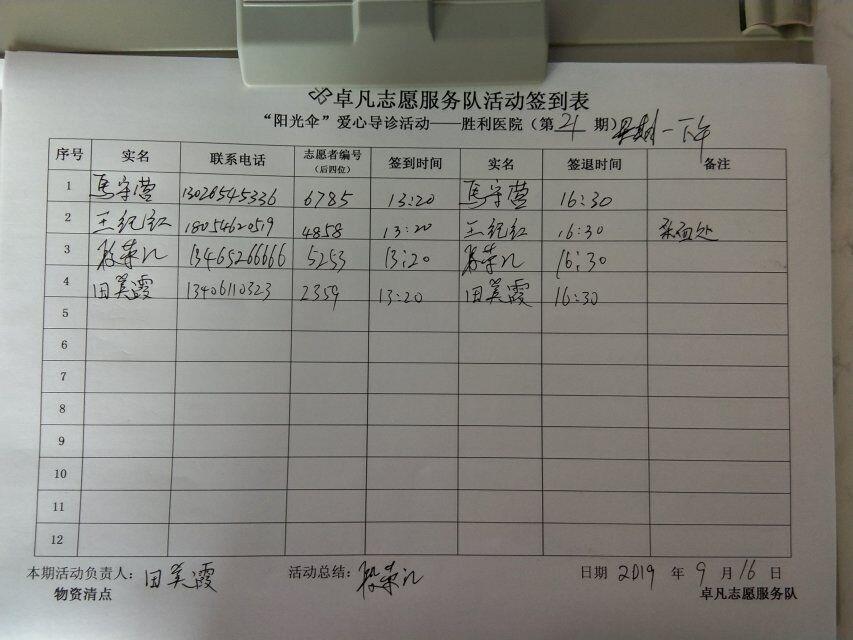 卓凡志愿服务队活动签到表
“阳光伞”爱心导诊活动——胜利医院（第 21 期）星期一下午
序号 实名 联系电话 志愿者编号（后四位） 签到时间 实名 签退时间 备注
1 马守营 13026545336 6785 13:20 马守营 16:30
2 王纪红 18054620519 4858 13:20 王纪红 16:30 采血处
3 13465266666 5253 13:20 16:30
4 田美霞 13406110323 2359 13:20 田美霞 16:30
5
6
7
8
9
10
11
12
本期活动负责人：田美霞 活动总结： 日期 2019 年 9 月 16 日
物资清点 卓凡志愿服务队